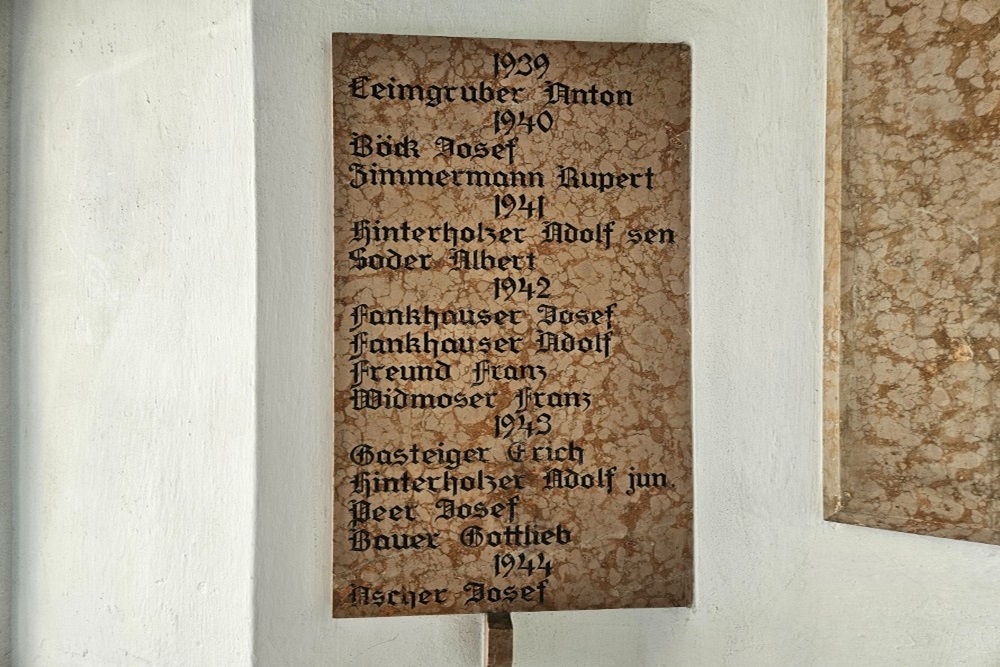 1939
Leimgruber Anton
1940
Böck Josef
Zimmermann Rupert
1941
Hinterholzer Adolf sen
Soder Albert
1942
Fankhauser Josef
Fankhauser Adolf
Freund Franz
Widmoser Franz
1943
Gasteiger Erich
Hinterholzer Adolf jun.
Peer Josef
Bauer Gottlieb
1944
Ascher Josef